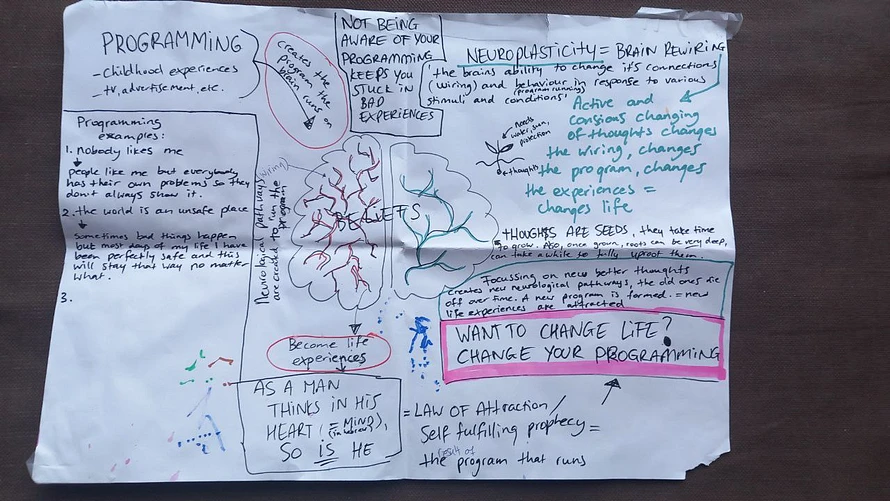 PROGRAMMING
- childhood experiences
- tv, advertisement, etc.
creates the
program the
brain runs on
NOT BEING
AWARE OF YOUR
PROGRAMMING
KEEPS YOU
STUCK IN
BAD
EXPERIENCES
NEUROPLASTICITY = BRAIN REWIRING
'the brains ability to change it's connections
(wiring) and behaviour in response to various
(program running)
stimuli and conditions'
Active and
consious changing
of thoughts changes
the wiring, changes
the program, changes
the experiences =
changes life
Needs
water, sun,
protection
thoughts
Programming
examples:
1. nobody likes me
people like me but everybody
has their own problems so they
don't always show it.
2. the world is an unsafe place
sometimes bad things happen
but most days of my life I have
been perfectly safe and this
will stay that way no matter
what.
3.
Neurological pathways
(wiring)
are created to run the
program
BELIEFS
THOUGHTS ARE SEEDS, they take time
to grow. Also, once grown, roots can be very deep,
can take a while to fully uproot them.
Focussing on new better thoughts
creates new neurological pathways, the old ones die
off over time. A new program is formed. = new
life experiences are attracted
WANT TO CHANGE LIFE?
CHANGE YOUR PROGRAMMING
Become life
experiences
AS A MAN
THINKS IN HIS
HEART (= MIND
(in hebrew)),
SO IS HE
= LAW OF Attraction /
Self fulfilling prophecy =
result of
the program that runs